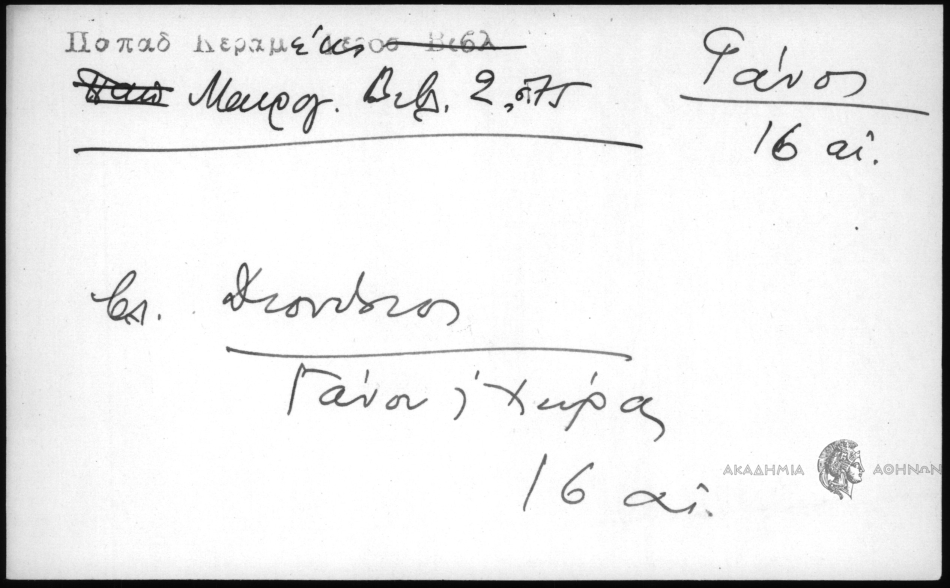 Παπαδ Κεραμέως
Μαυρογ. Βιβ. 2, 575
Γάνος
16 αἰ.
βλ. Διονύσιος
Γάνου & Χώρας
16 αἰ.
ΑΚΑΔΗΜΙΑ ΑΘΗΝΩΝ